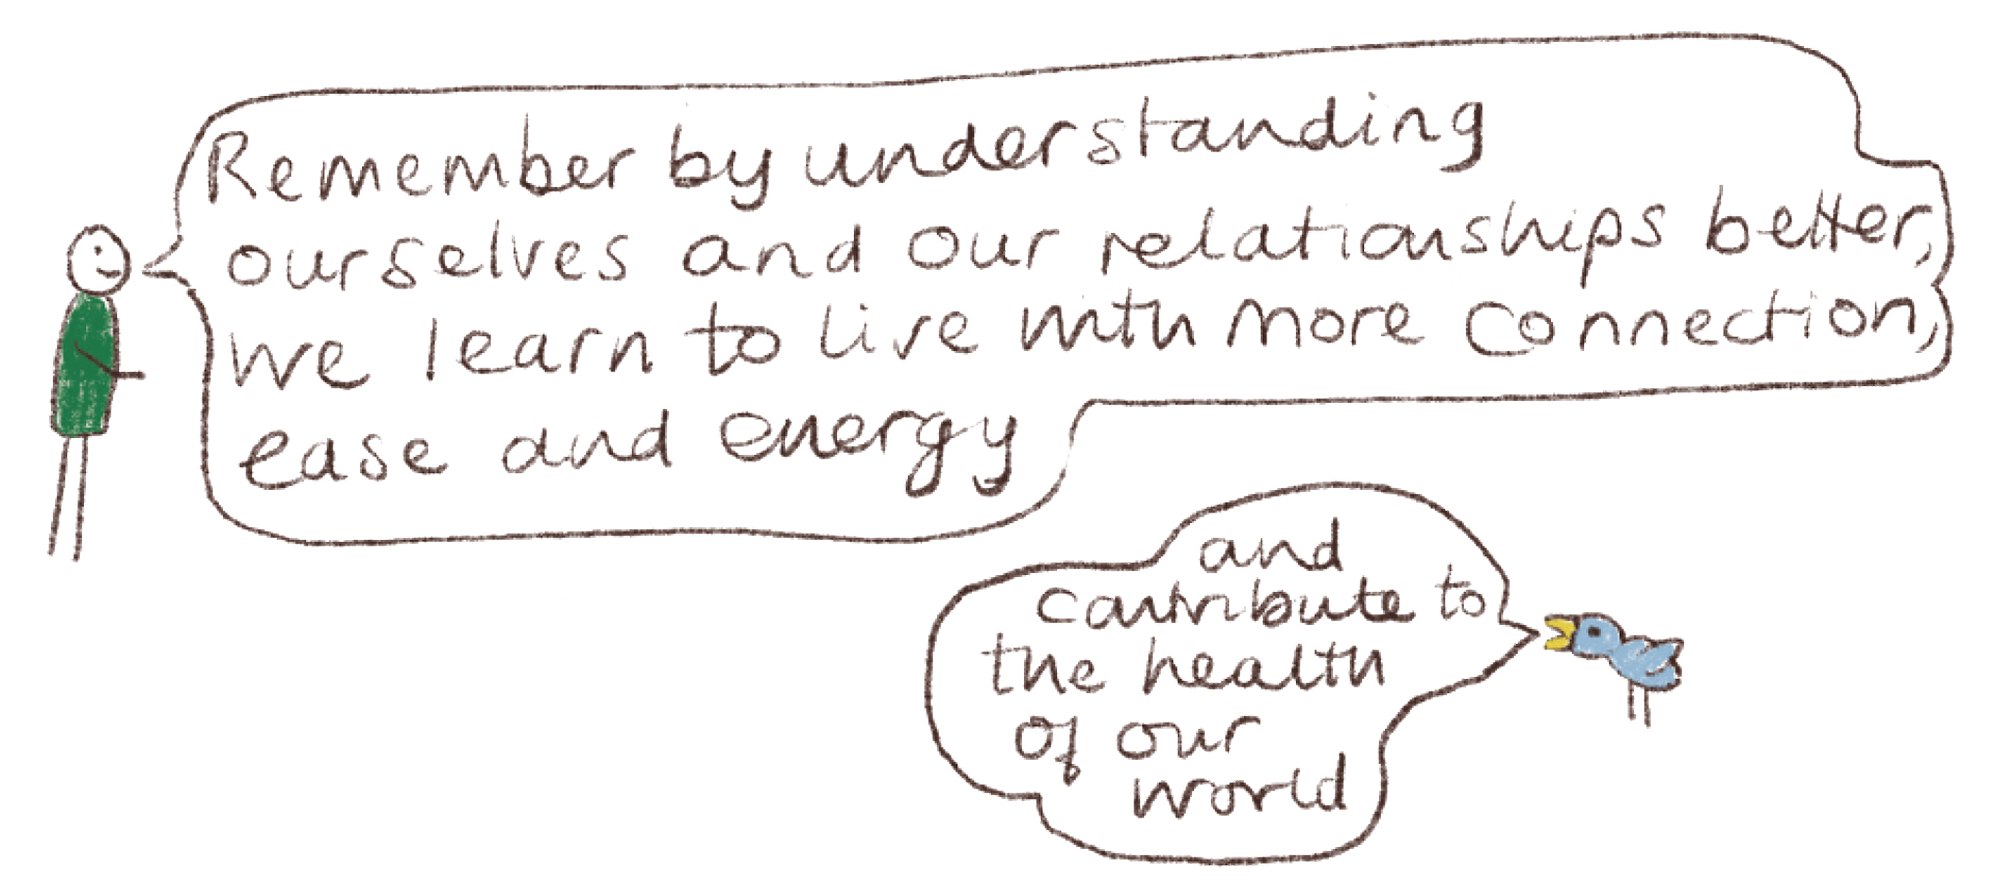 Remember by understanding
ourselves and our relationships better,
we learn to live with more connection,
ease and energy
and
contribute to
the health
of our
world